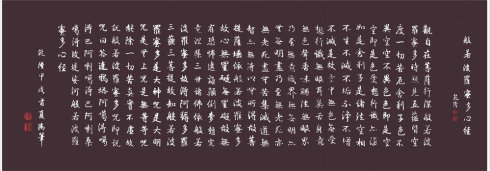 般若波羅蜜多心經
乾隆
觀自在菩薩行深般若波
羅蜜多時照見五蘊皆空
度一切苦厄舍利子色不
異空空不異色色即是空
空即是色受想行識亦復
如是舍利子是諸法空相
不生不滅不垢不淨不增
不減是故空中無色無受
想行識無眼耳鼻舌身意
無色聲香味觸法無眼界
乃至無意識界無無明亦
無無明盡乃至無老死亦
無老死盡無苦集滅道無
智亦無得以無所得故菩
提薩埵依般若波羅蜜多
故心無罣礙無罣礙故無
有恐怖遠離顛倒夢想究
竟涅槃三世諸佛依般若
波羅蜜多故得阿耨多羅
三藐三菩提故知般若波
羅蜜多是大神咒是大明
咒是無上咒是無等等咒
能除一切苦真實不虛故
說般若波羅蜜多咒即說
咒曰答達雅塔阿噶得噶
得巴阿喇噶得巴阿喇桑
噶得娑訶般若波羅
蜜多心經
乾隆甲戌首夏御筆